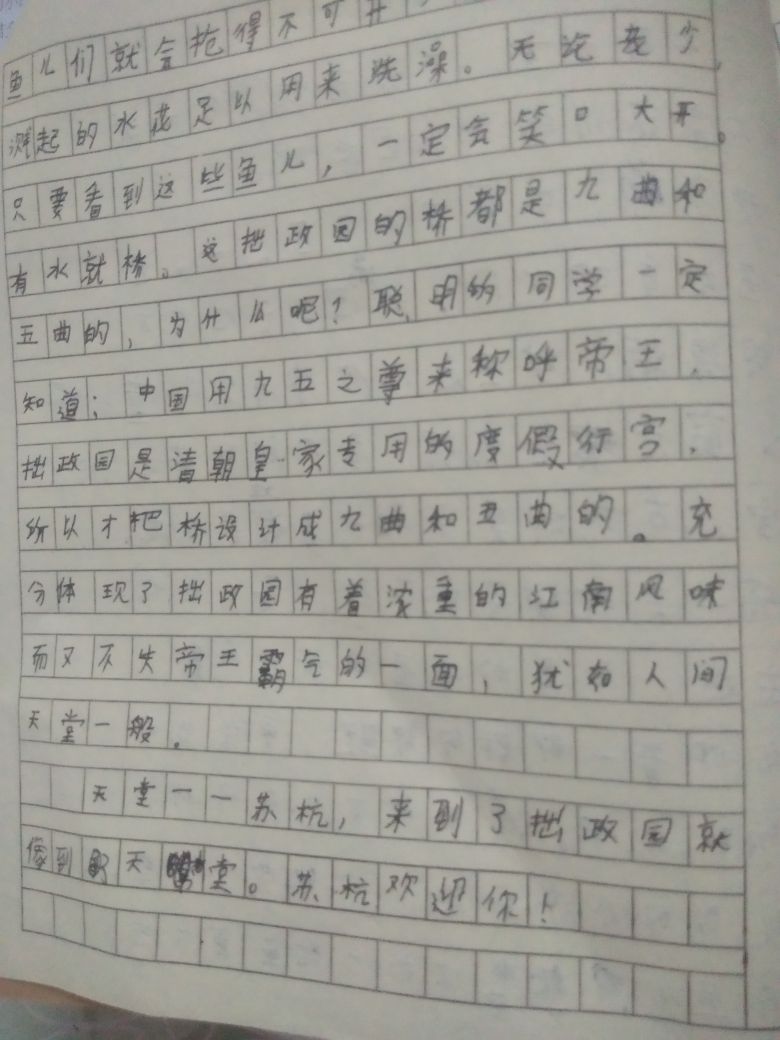 鱼儿们就会抢得不可开
溅起的水花足以用来洗澡。无论老少,
只要看到这些鱼儿,一定会笑口大开。
有水就桥。这拙政园的桥都是九曲和
五曲的,为什么呢?聪明的同学一定
知道:中国用九五之尊来称呼帝王,
拙政园是清朝皇家专用的度假行宫,
所以才把桥设计成九曲和五曲的。充
分体现了拙政园有着浓重的江南风味
而又不失帝王霸气的一面,犹如人间
天堂一般。
天堂一一苏杭,来到了拙政园就
像到天堂。苏杭欢迎你!